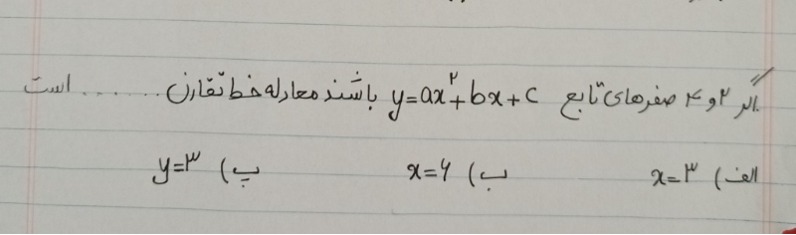 اگر ۲ و ۴ صفرهای تابع y=ax²+bx+c باشند معادله خط تقارن ....... است
الف) x=۳ ب) x=۶ پ) y=۳